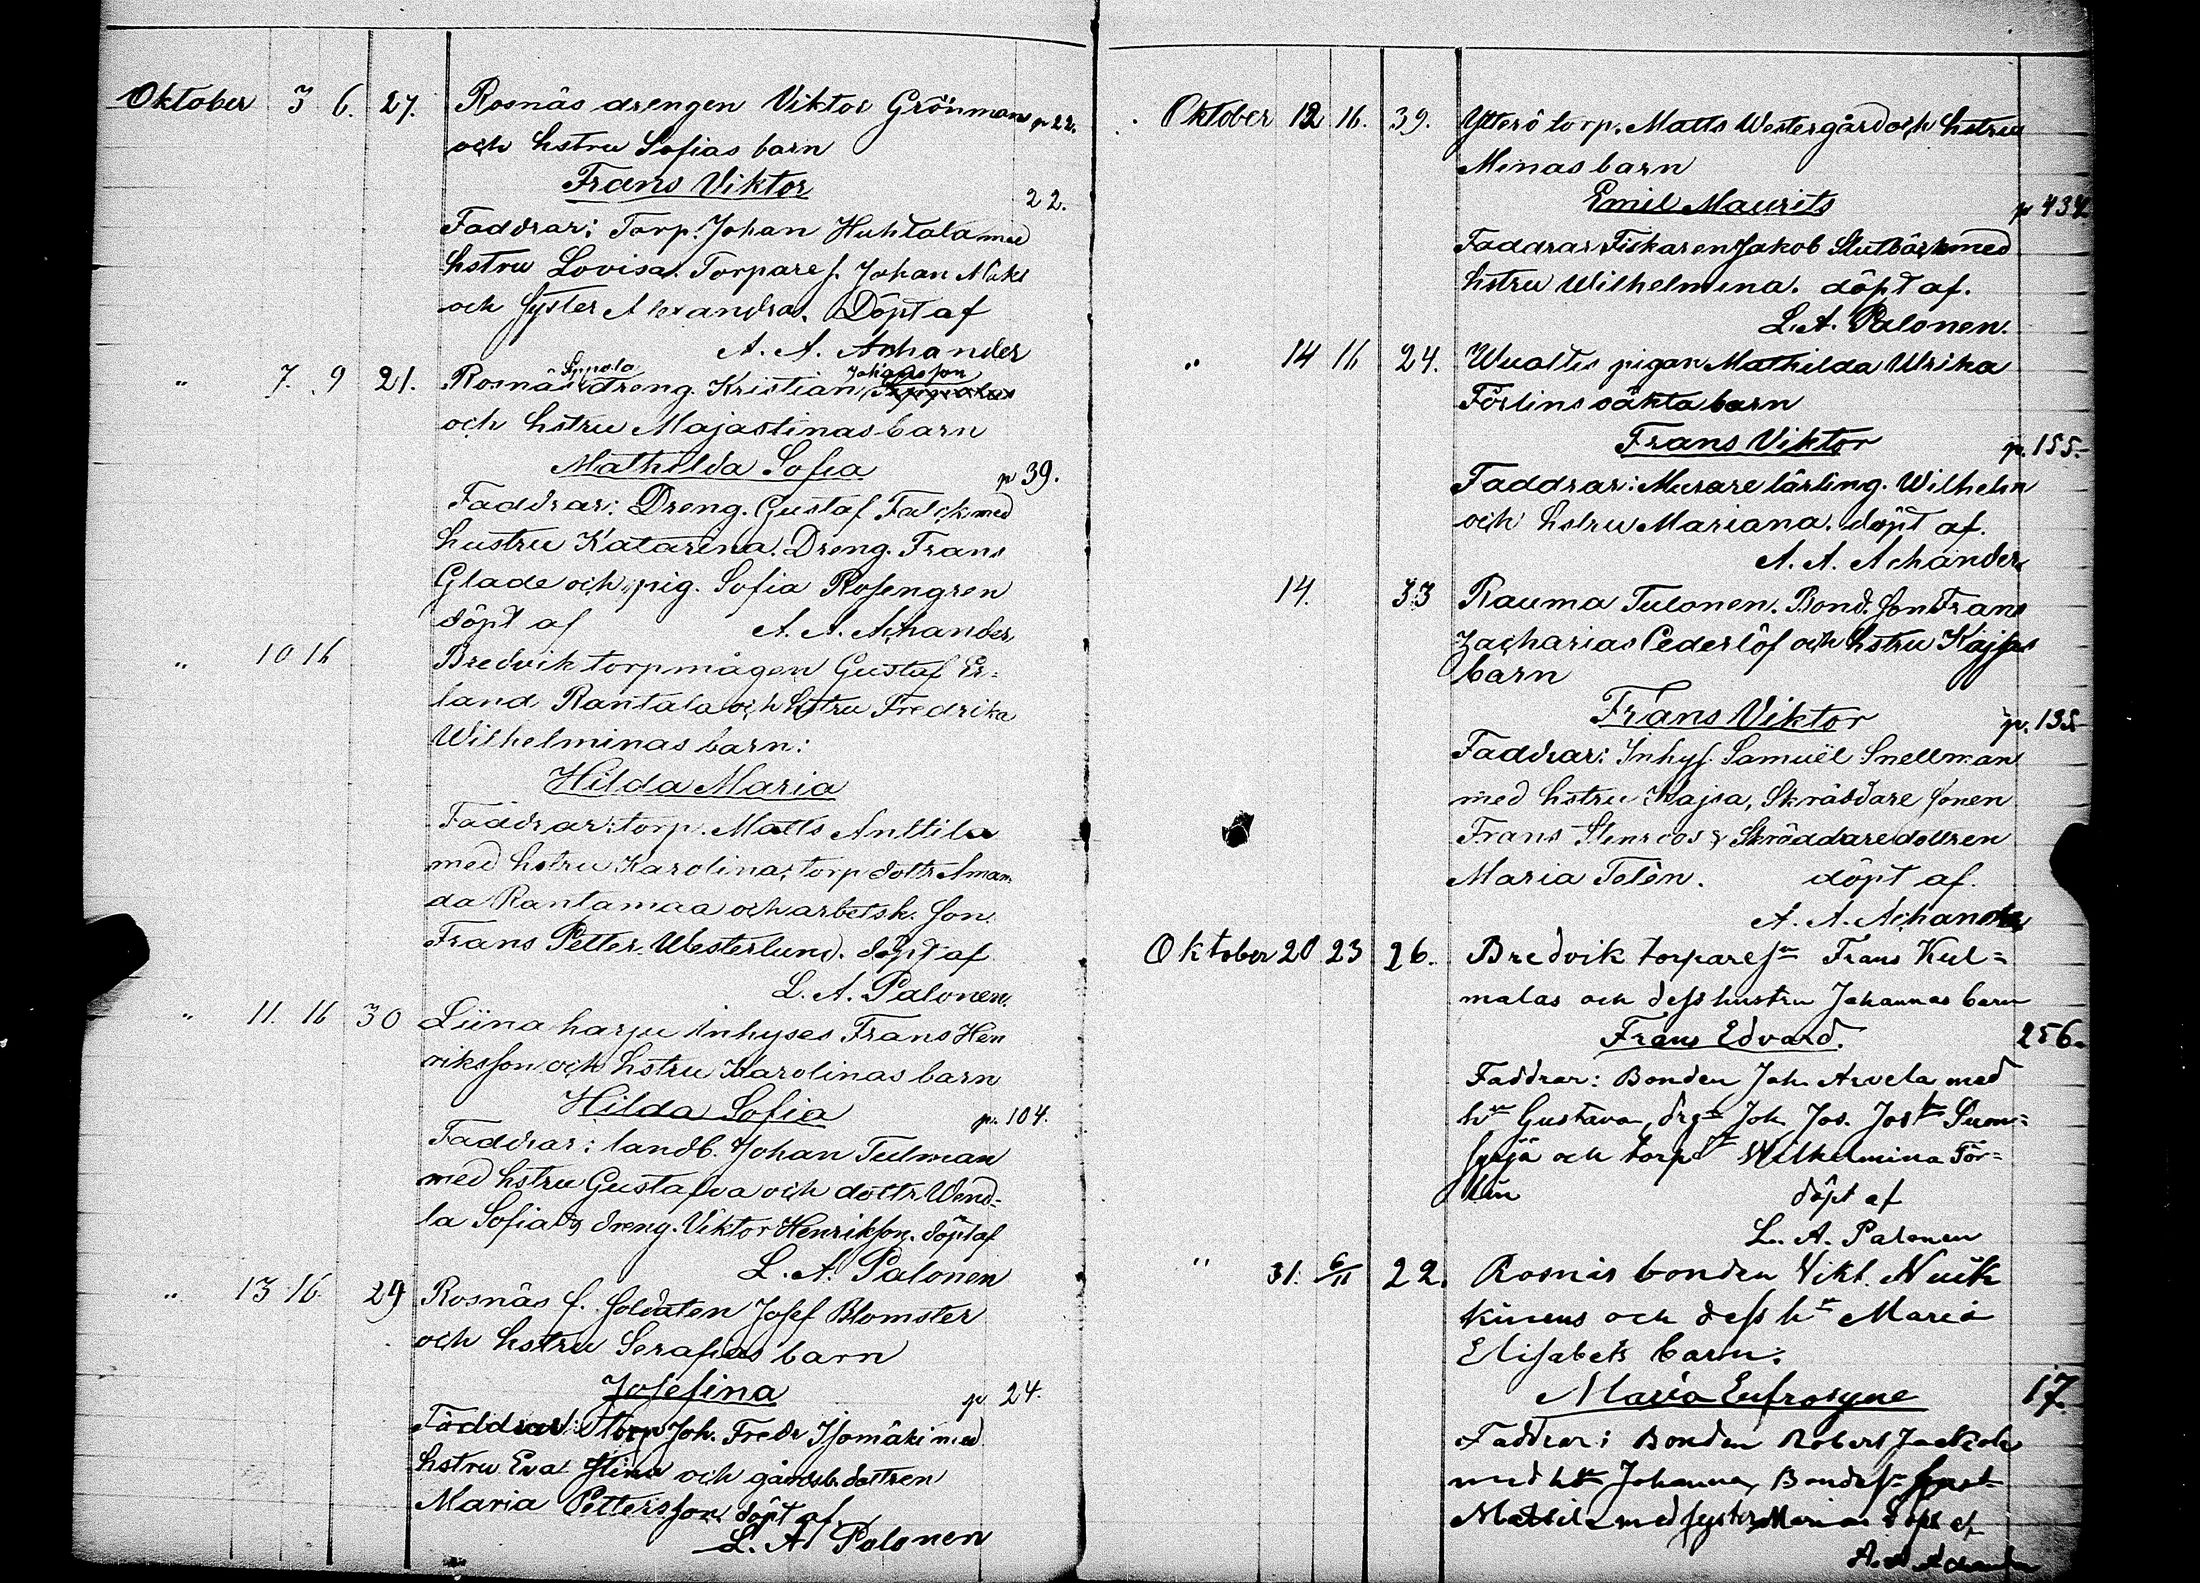 Oktober 3 6. 27. Rosnäs drengen Viktor Grönmans p 22.
och hstru Sofias barn
Frans Viktor
22.
Faddrar: Torp. Johan Huhtala med
hstru Lovisa. Torpare s. Johan Mäki
och syster Alexandra. Döpt af
A. A. Achander
" 7. 9 21. Rosnäs Sippola dreng. Kristian Johansson
och hstru Majastinas barn
Mathilda Sofia p 39.
Faddrar: Dreng. Gustaf Falck med
hustru Katarina. Dreng. Frans
Glade och pig. Sofia Rosengren
döpt af A. A. Achander
" 10 16 Bredvik torpmågen Gustaf Er-
land Rantala och hstru Fredrika
Wilhelminas barn:
Hilda Maria
Faddrar: torp. Matts Anttila
med hstru Karolina, torp dottr Aman
da Rantamaa och arbetsk. son.
Frans Petter Westerlund. döpt af
L. A. Palonen.
" 11. 16 30 Liina harju inhyses Frans Hen
riksson och hstru Karolinas barn
Hilda Sofia p. 104.
Faddrar: landb. Johan Tulman
med hstru Gustafva och dottr. Wend-
la Sofia & dreng. Viktor Henriksson. döpt af
L. A. Palonen
" 13 16 29 Rosnäs f. soldaten Josef Blomster
och hstru Serafias barn
Josefina p 24.
Faddrar: torp Joh. Fredr Isomäki med
hstru Eva Stina och gårdsb. dottren
Maria Pettersson, döpt af
L. A. Palonen
Oktober 12 16. 39. Ytterö torp. Matts Westergård och hstru
Minas barn
Emil Maurits p 434
Faddrar Fiskaren Jakob Slutbäck med
hstru Wilhelmina. döpt af.
L. A. Palonen.
" 14 16 24. Wualtis pigan Mathilda Ulrika
Förlins oäkta barn
Frans Viktor p. 155.
Faddrar: Murare lärling. Wilhelm
och hstru Mariana. döpt af.
A. A. Achander
14. 33 Rauma Tulonen. Bond. son Frans
Zacharias Cederlöf och hstru Kajsas
barn
Frans Viktor p. 135
Faddrar: Inhys. Samuël Snellman
med hstru Kajsa, Skräddare sonen
Frans Stenroos & Skräddaredottren
Maria Telén. döpt af.
A. A. Achander
Oktober 20 23 26. Bredvik torpares Frans Kul=
malas och dess hustru Johannas barn
Frans Edvard. 256.
Faddrar: Bonden Joh. Arvela med
hu Gustava, drgn Joh. Jos. Suon=
pää och torp Wilhelmina För=
lin döpt af
L. A. Palonen
" 31. 6/11 22. Rosnäs bonden Vikt. Nuik
kinens och dess hu Maria
Elisabets barn.
Maria Eufrosyne 17.
Faddrar: Bonden Robert Jaakola
med hu Johanna, Bondes Gust.
Mattila med syster Maria döpt af
A. A. Achander